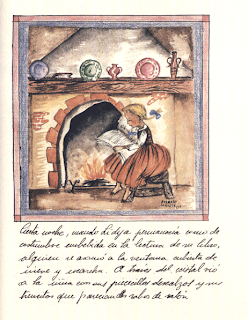 Cierta noche, cuando Lideja permanecía como de
costumbre embebida en la lectura de su libro,
alguien se asomó a la ventana cubierta de
nieve y escarcha. A través del cristal vió
a la niña con sus piececillos descalzos y sus
trencitas que parecían rabos de ratón